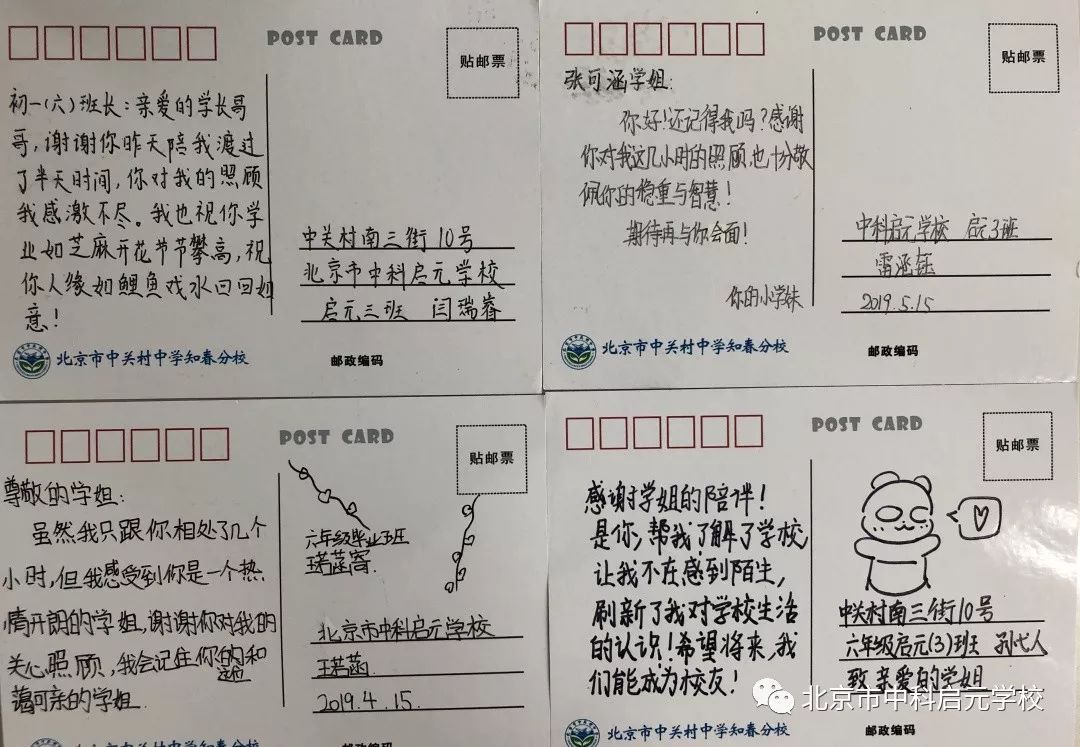 POST CARD
贴邮票
初一(六)班长：亲爱的学长哥
哥，谢谢你昨天陪我渡过
了半天时间，你对我的照顾
我感激不尽。我也祝你学
业如芝麻开花节节攀高，祝
你人缘如鲤鱼戏水回回如
意！
中关村南三街10号
北京市中科启元学校
启元三班 闫瑞睿
北京市中关村中学知春分校
邮政编码
POST CARD
贴邮票
张可涵学姐：
你好！还记得我吗？感谢
你对我这几小时的照顾，也十分敬
佩你的稳重与智慧！
期待再与你会面！
你的小学妹
中科启元学校 启元3班
雷涵钰
2019.5.15
北京市中关村中学知春分校
邮政编码
POST CARD
贴邮票
尊敬的学姐：
虽然我只跟你相处了几个
小时，但我感受到你是一个热
情开朗的学姐，谢谢你对我的
关心照顾，我会记住你的和
这位
蔼可亲的学姐
六年级毕业班
王若菡寄
北京市中科启元学校
王若菡
2019.4.15
POST CARD
贴邮票
感谢学姐的陪伴！
是你，帮我了解了学校，
让我不在感到陌生，
刷新了我对学校生活
的认识！希望将来，我
们能成为校友！
中关村南三街10号
六年级启元(3)班 孙弋人
致亲爱的学姐
邮政编码
北京市中科启元学校